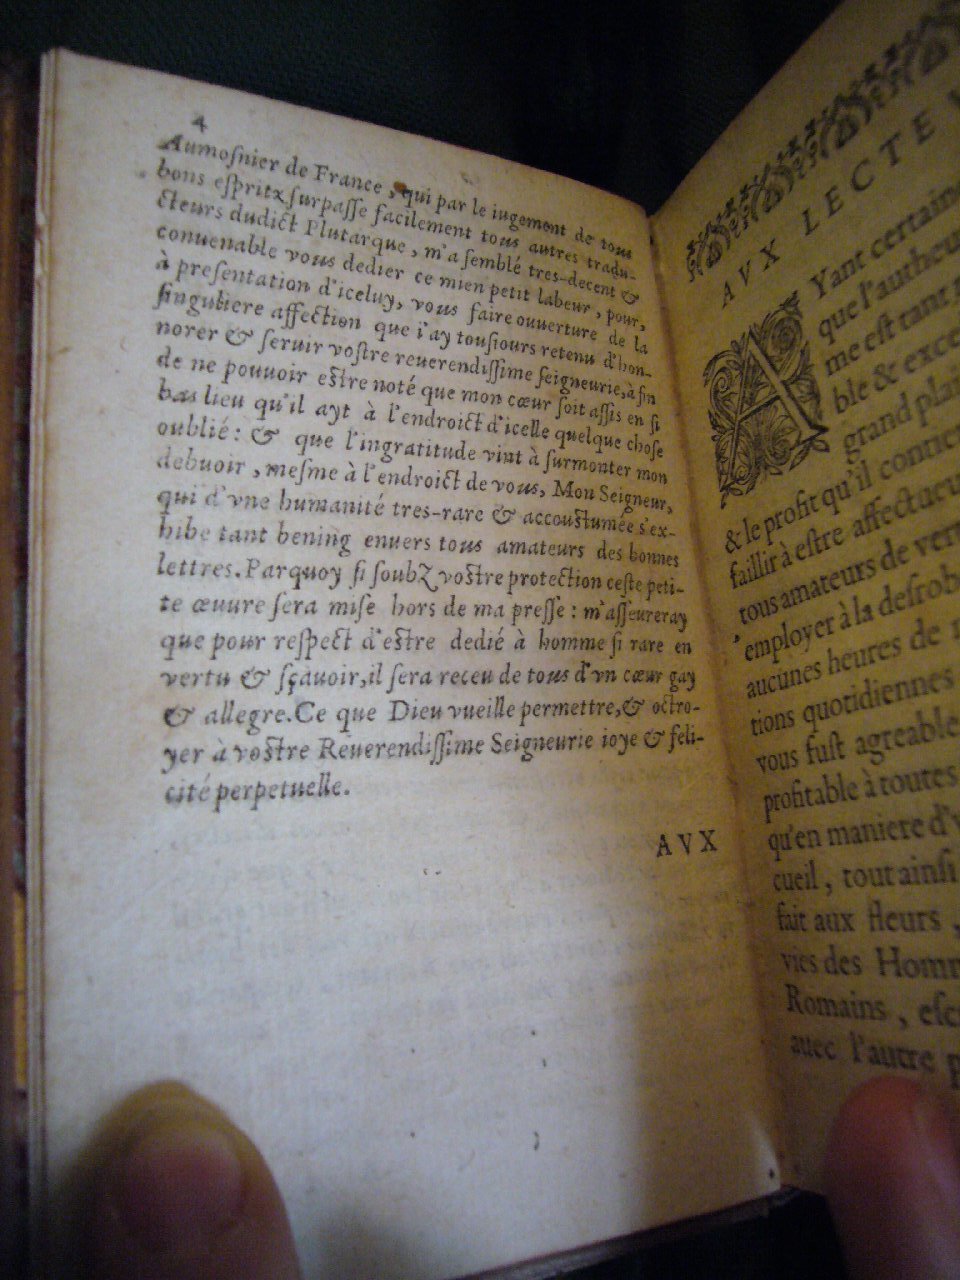 4
Aumoſnier de France, qui par le iugement de tous
bons eſpritz ſurpaſſe facilement tous autres tradu-
cteurs dudict Plutarque, m'a ſemblé tres-decent &
conuenable vous dedier ce mien petit labeur, pour,
à preſentation d'iceluy, vous faire ouuerture de la
ſinguliere affection que i'ay touſiours retenu d'hon-
norer & ſeruir voſtre reuerendiſſime ſeigneurie, à fin
de ne pouuoir eſtre noté que mon cœur ſoit aſſis en ſi
bas lieu qu'il ayt à l'endroict d'icelle quelque choſe
oublié: & que l'ingratitude vint à ſurmonter mon
debuoir, meſme à l'endroict de vous, Mon Seigneur,
qui d'vne humanité tres-rare & accouſtumée s'ex-
hibe tant bening enuers tous amateurs des bonnes
lettres. Parquoy ſi ſoubz voſtre protection ceſte peti-
te œuure ſera miſe hors de ma preſſe: m'aſſeureray
que pour reſpect d'eſtre dedié à homme ſi rare en
vertu & ſçauoir, il ſera receu de tous d'vn cœur gay
& allegre. Ce que Dieu vueille permettre, & octro-
yer à voſtre Reuerendiſſime Seigneurie ioye & feli-
cité perpetuelle.
AVX
AVX LECTE
AYant certain
que l'autheu
me eſt tant
ble & exce
grand plai
& le profit qu'il contie
faillir à eſtre affectueu
tous amateurs de ver
employer à la deſrob
aucunes heures de
tions quotidiennes
vous fuſt agreable
profitable à toutes
qu'en maniere d'v
cueil, tout ainſi
fait aux fleurs,
vies des Hom
Romains, eſc
auec l'autre p